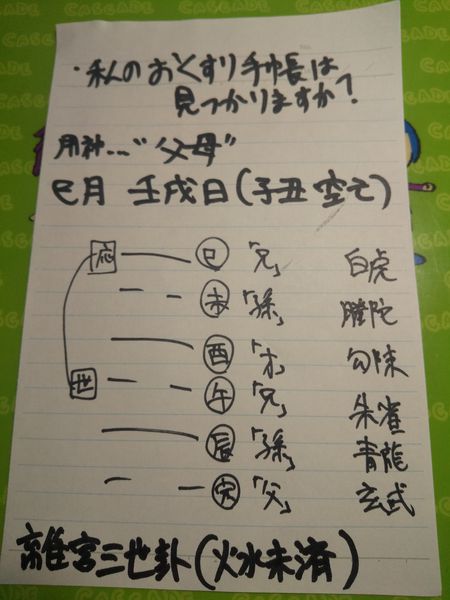 ・私のおくすり手帳は
見つかりますか?
用神…"父母"
巳月 壬戌日(子丑 空亡)
応 巳 「兄」 白虎
未 「孫」 騰陀
酉 「才」 勾陳
世 午 「兄」 朱雀
辰 「孫」 青龍
寅 「父」 玄武
離宮三世卦(火水未済)
CASCADE